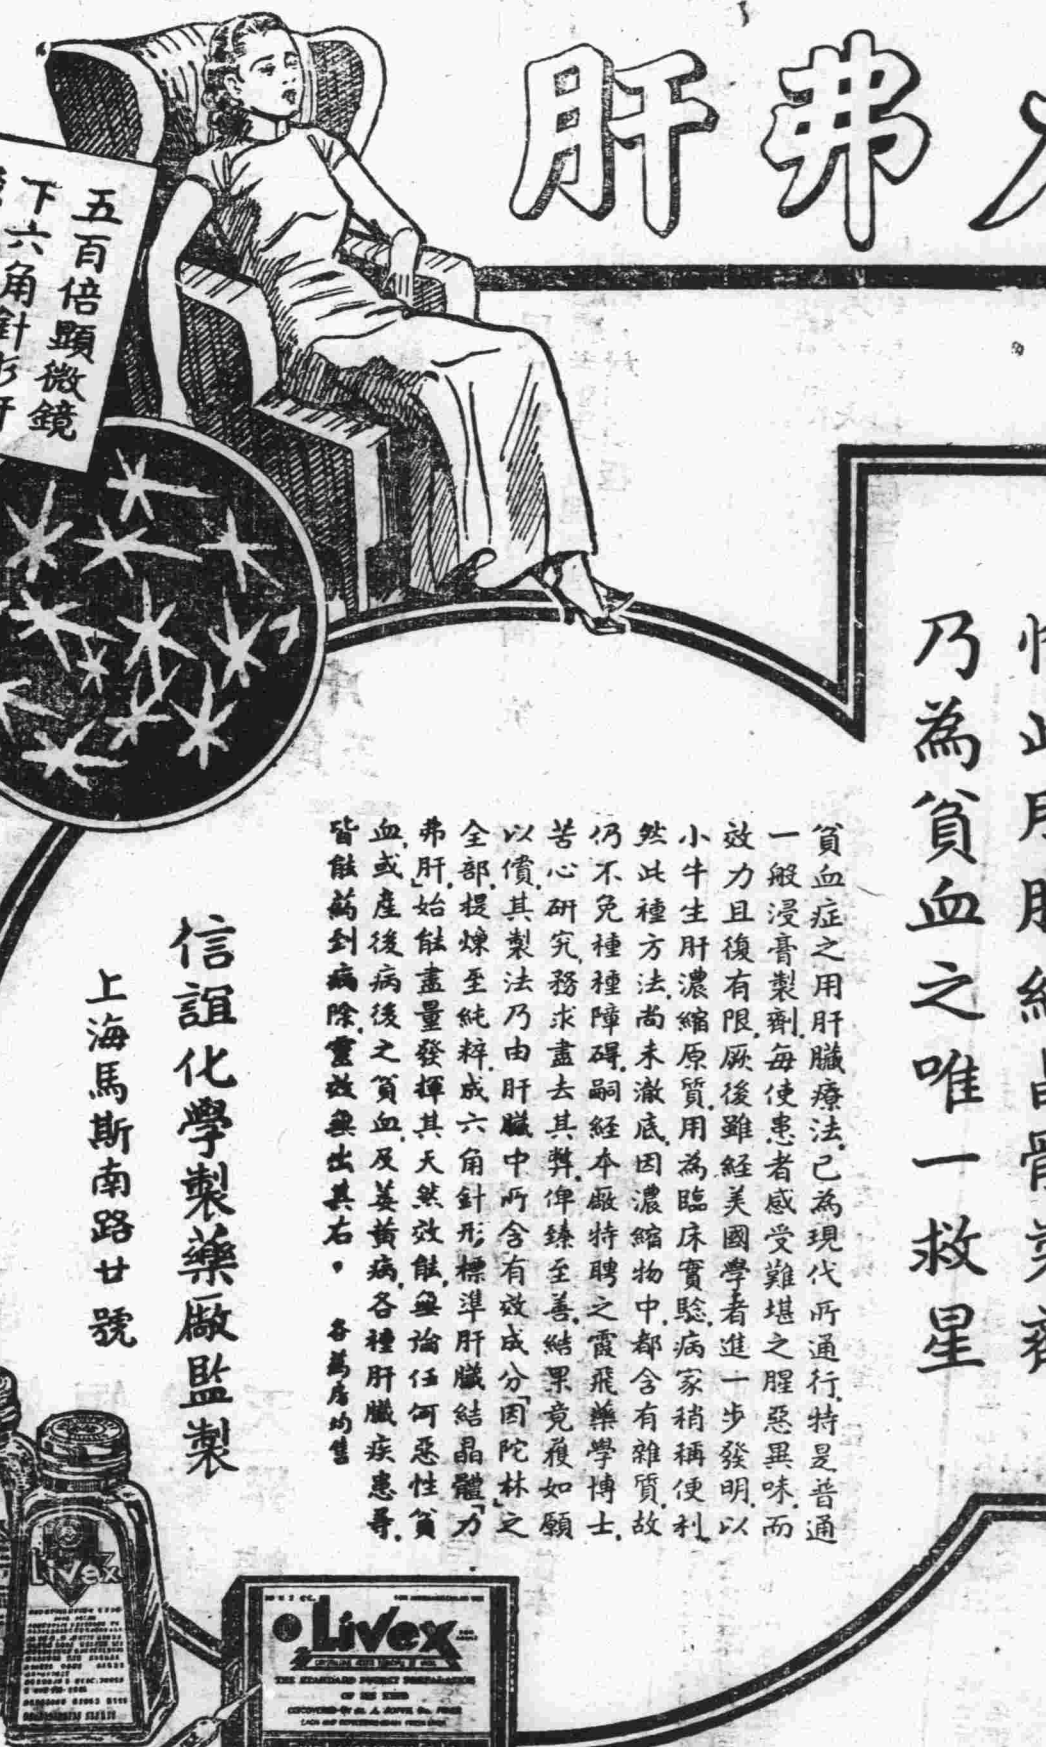 力弗肝
乃為貧血之唯一救星
貧血症之用肝臟療法.已為現代所通行.特是普通
一般浸膏製劑.每使患者感受難堪之腥惡異味.而
效力且復有限.厥後雖經美國學者進一步發明.以
小牛生肝濃縮原質.用為臨床實驗.病家稍稱便利.
然此種方法.尚未澈底.因濃縮物中.都含有雜質.故
仍不免種種障碍.嗣経本廠特聘之霞飛藥學博士.
苦心研究.務求盡去其弊.俾臻至善.結果竟獲如願
以償.其製法乃由肝臟中所含有效成分「因陀林」之
全部.提煉至純粹.成六角針形標準肝臟結晶體「力
弗肝」.始能盡量發揮其天然效能.無論任何惡性貧
血.或産後病後之貧血.及萎黃病.各種肝臟疾患等.
皆能藥到病除.靈效無出其右。
各藥房均售
信誼化學製藥廠監製
上海馬斯南路廿號
五百倍顯微鏡
下六角針形肝
Livex
Livex
THE STANDARD POTENT PREPARATION
OF ITS KIND